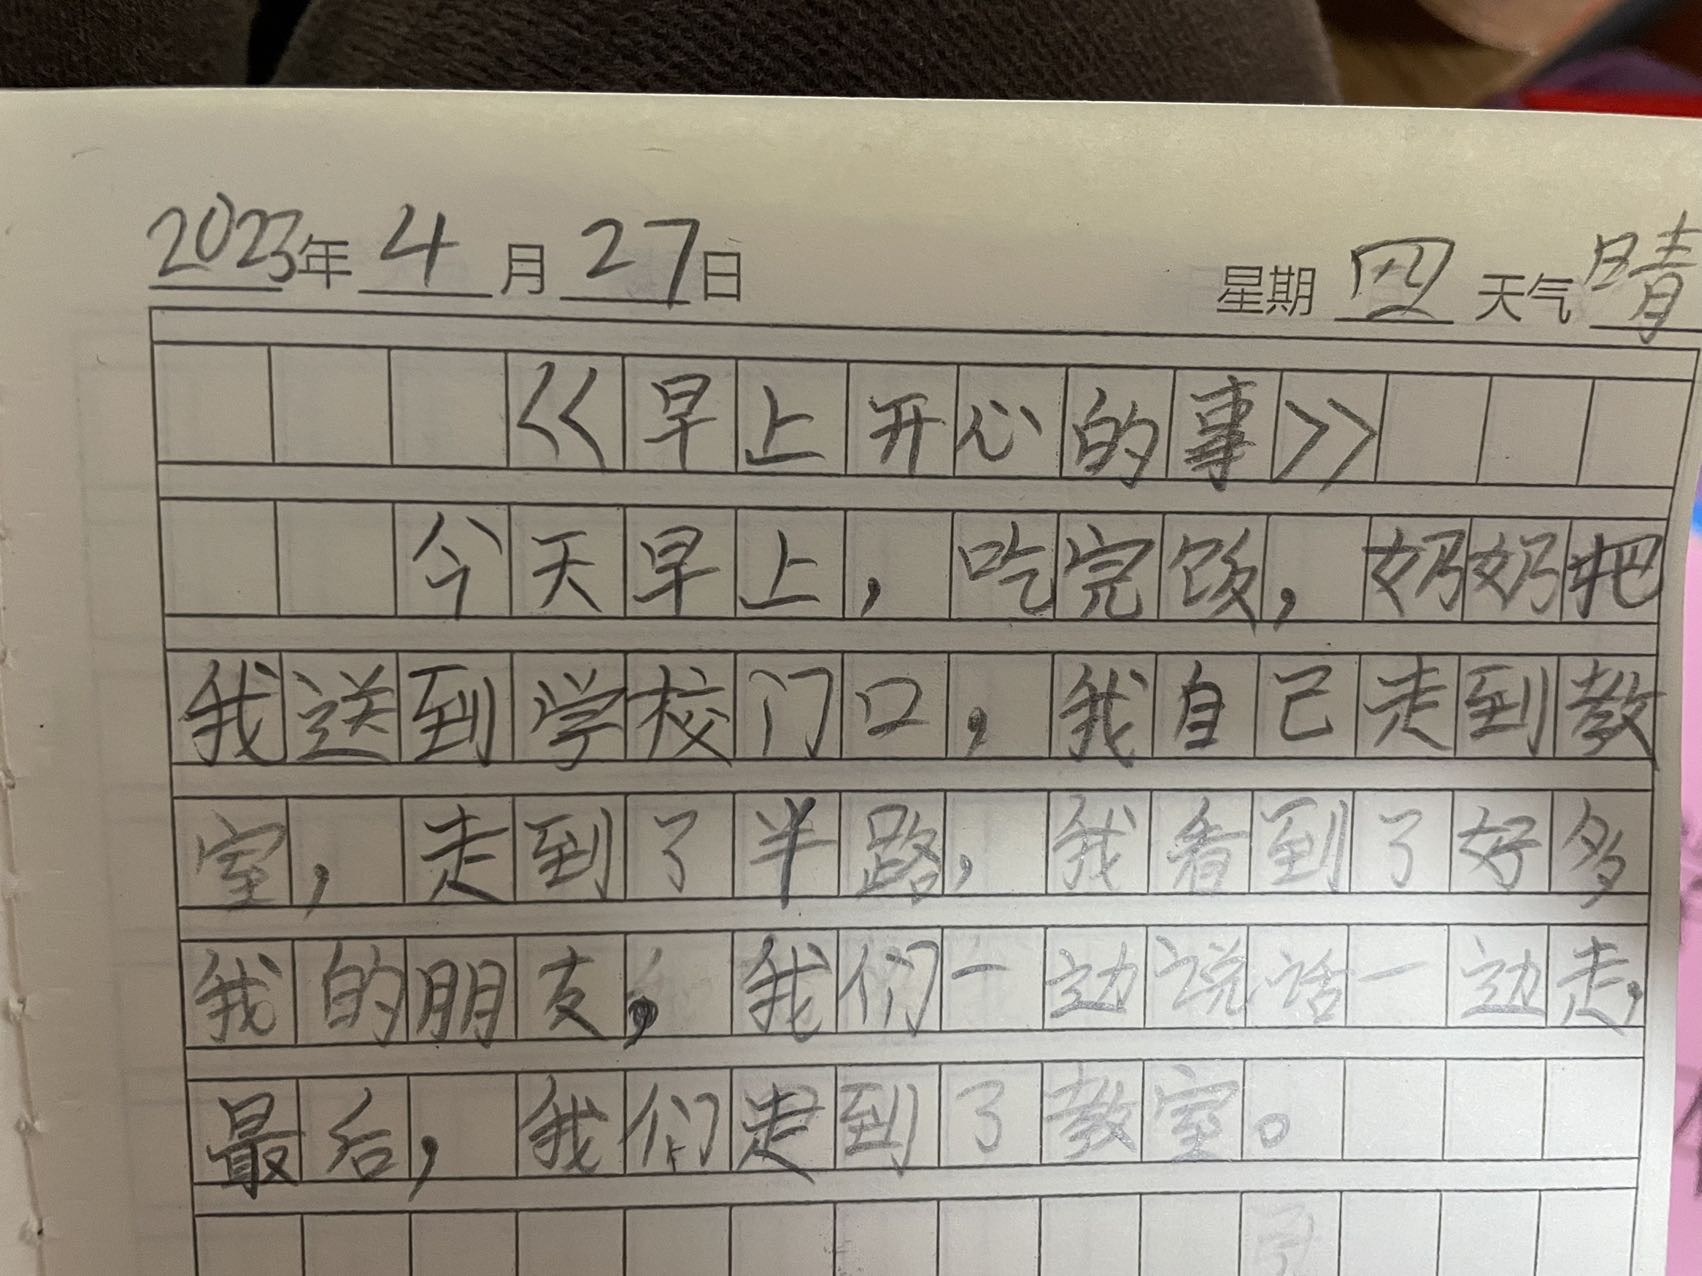 2023年 4 月 27 日 星期 四 天气 晴
《早上开心的事》
今天早上，吃完饭，奶奶把
我送到学校门口，我自己走到教
室，走到了半路，我看到了好多
我的朋友，我们一边说话一边走，
最后，我们走到了教室。